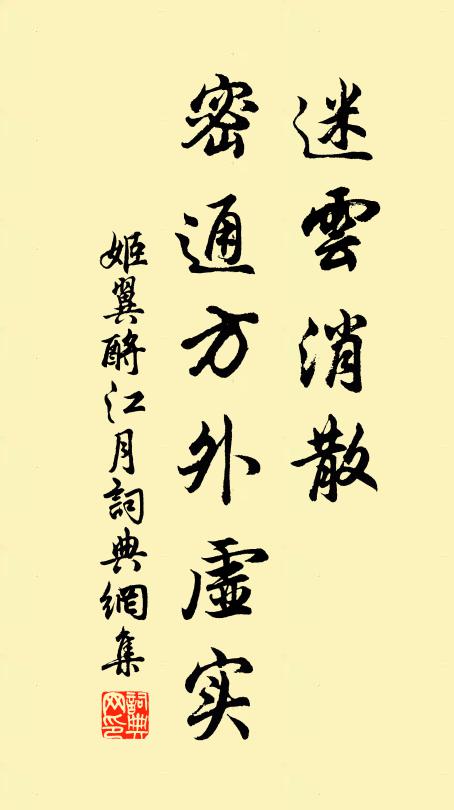 迷雲消散
密通方外虛实
姬翼酹江月詞典網集
詞典网印